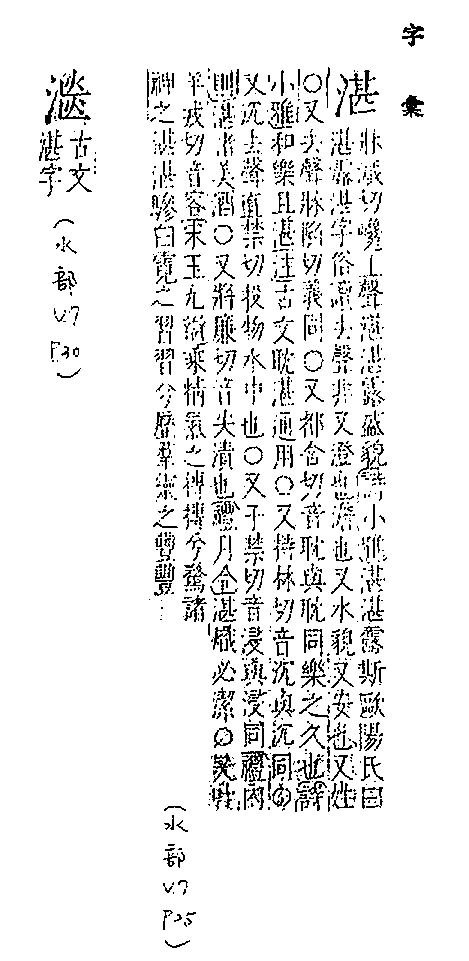 字彙
湛
牀減切巉上聲湛湛露盛貌詩小雅湛湛露斯歐陽氏曰
湛露湛字俗讀去聲非又澄也澹也又水貌又安也又姓
○又去聲牀陷切義同○又都含切音耽與耽同樂之久也詩
小雅和樂且湛注古文耽湛通用○又持林切音沉與沉同○
又沉去聲直禁切投物水中也○又子禁切音浸與浸同禮內
則湛諸美酒○又將廉切音尖漬也禮月令湛熾必潔○又叶
羊戎切音容宋玉九辯乘精氣之摶摶兮騖諸
神之湛湛驂白霓之習習兮歷羣靈之豐豐
(水部 V.7 P.25)
古文
湛字
(水部 V.7 P.30)